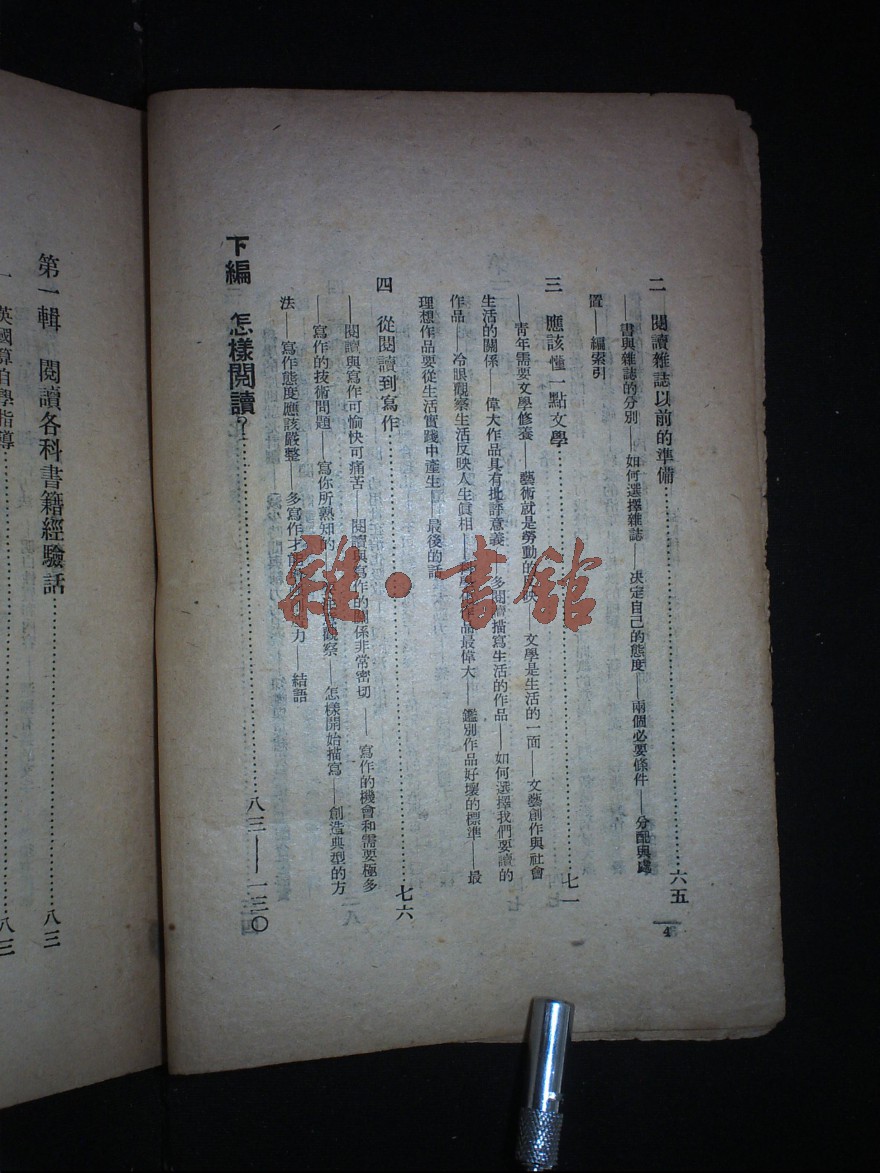 二　閱讀雜誌以前的準備……六五
——書與雜誌的分別——如何選擇雜誌——決定自己的態度——兩個必要條件——分配與處
置——編索引
三　應該懂一點文學……七一
——青年需要文學修養——藝術就是勞動的反映——文學是生活的一面——文藝創作與社會
生活的關係——偉大作品具有批評意義——多閱讀描寫生活的作品——如何選擇我們要讀的
作品——冷眼觀察生活反映人生眞相——作品最偉大——鑑別作品好壞的標準——最
理想作品要從生活實踐中產生——最後的話
四　從閱讀到寫作……七六
——閱讀與寫作可愉快可痛苦——閱讀與寫作的關係非常密切——寫作的機會和需要極多
——寫作的技術問題——寫你所熟知的——觀察——怎樣開始描寫——創造典型的方
法——寫作態度應該嚴整——多寫作才能　力——結語
下編　怎樣閱讀？……八三——一三〇
4
第一輯　閱讀各科書籍經驗話……八三
一　英國算自學指導……八三
雜·書館